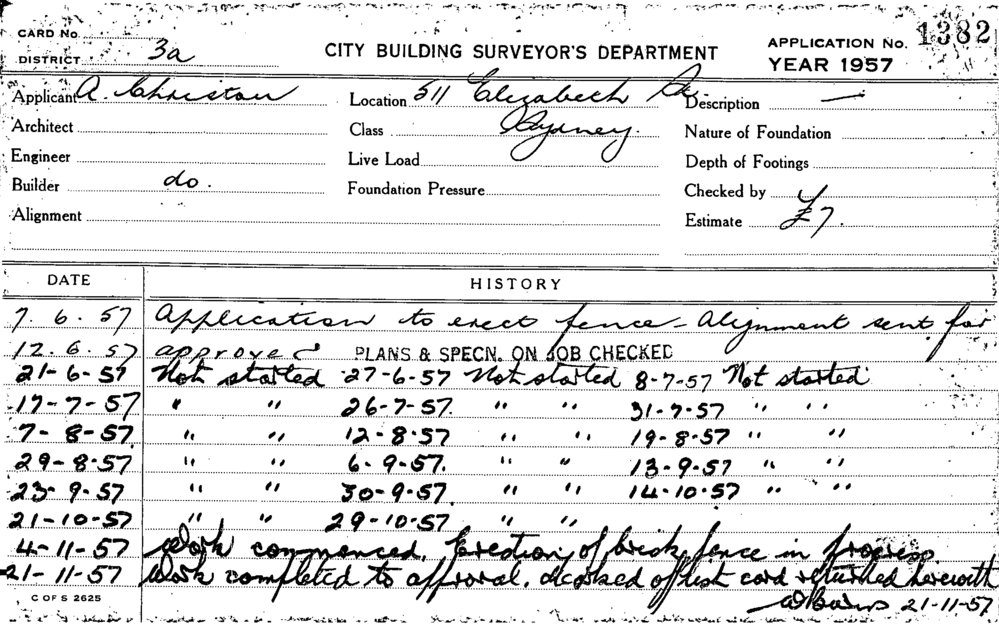 CARD No.
DISTRICT 3a
CITY BUILDING SURVEYOR'S DEPARTMENT
APPLICATION No. 1382
YEAR 1957
Applicant A. Christou Location 511 Elizabeth St. Description —
Architect Class Sydney. Nature of Foundation
Engineer Live Load Depth of Footings
Builder do. Foundation Pressure Checked by
Alignment Estimate £7.
DATE HISTORY
7. 6. 57 Application to erect fence - Alignment sent for
12. 6. 57 approved PLANS & SPECN. ON JOB CHECKED
21-6-57 Not started 27-6-57 Not started 8-7-57 Not started
17-7-57 " " 26-7-57. " " 31-7-57 " "
7-8-57 " " 12-8-57 " " 19-8-57 " "
29-8-57 " " 6-9-57. " " 13-9-57 " "
23-9-57 " " 30-9-57 " " 14-10-57 " "
21-10-57 " " 29-10-57 " "
4-11-57 Work commenced. Erection of brick fence in progress
21-11-57 Work completed to approval. card returned herewith
21-11-57
C OF S 2625